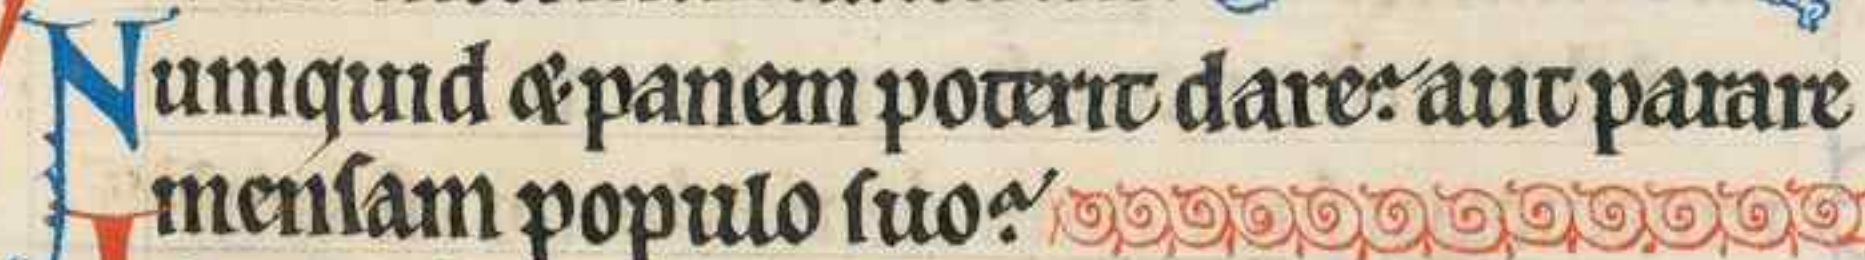 Numquid & panem poterit dare? aut parare
menſam populo ſuo?